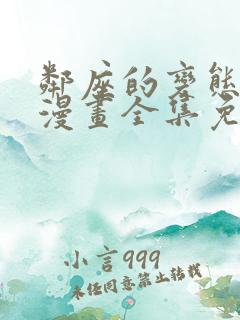 鄰座的变態
漫畫全集免
小言999
未经同意禁止转载